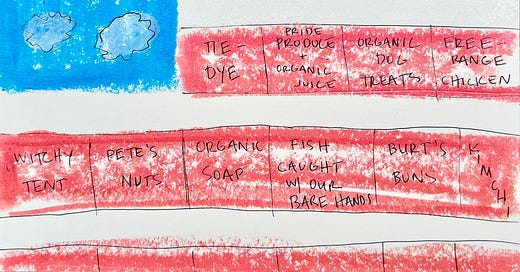 TIE-
DYE
PRIDE
PRODUCE
+
ORGANIC
JUICE
ORGANIC
DOG
TREATS
FREE-
RANGE
CHICKEN
WITCHY
TENT
PETE'S
NUTS
ORGANIC
SOAP
FISH
CAUGHT
W/ OUR
BARE HANDS
BURT'S
BUNS
KIMCHI